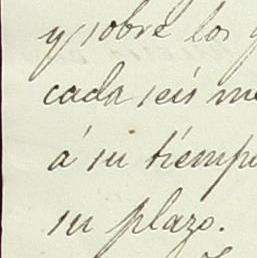 y sobre los
cada seis
á su tiempo
su plazo.